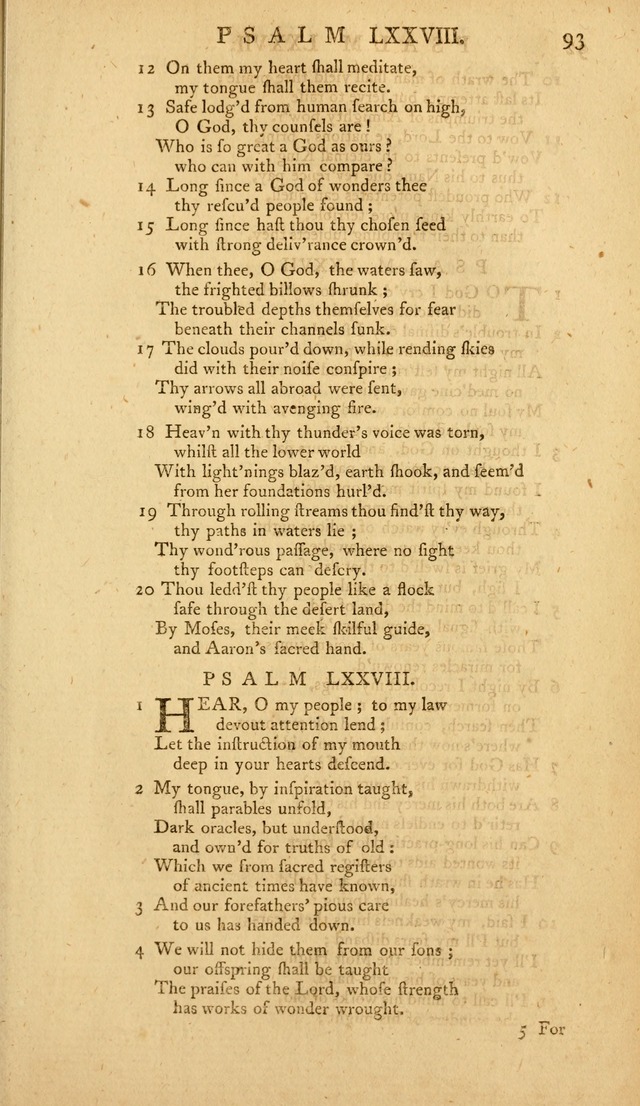 PSALM LXXVIII. 93
12 On them my heart ſhall meditate,
my tongue ſhall them recite.
13 Safe lodg'd from human ſearch on high,
O God, thy counſels are !
Who is ſo great a God as ours ?
who can with him compare ?
14 Long ſince a God of wonders thee
thy reſcu'd people found ;
15 Long ſince haſt thou thy choſen ſeed
with ſtrong deliv'rance crown'd.
16 When thee, O God, the waters ſaw,
the frighted billows ſhrunk ;
The troubled depths themſelves for fear
beneath their channels ſunk.
17 The clouds pour'd down, while rending ſkies
did with their noiſe conſpire ;
Thy arrows all abroad were ſent,
wing'd with avenging fire.
18 Heav'n with thy thunder's voice was torn,
whilſt all the lower world
With light'nings blaz'd, earth ſhook, and ſeem'd
from her foundations hurl'd.
19 Through rolling ſtreams thou find'ſt thy way,
thy paths in waters lie ;
Thy wond'rous paſſage, where no ſight
thy footſteps can deſcry.
20 Thou ledd'ſt thy people like a flock
ſafe through the deſert land,
By Moſes, their meek ſkilful guide,
and Aaron's ſacred hand.
PSALM LXXVIII.
1 HEAR, O my people ; to my law
devout attention lend ;
Let the inſtruction of my mouth
deep in your hearts deſcend.
2 My tongue, by inſpiration taught,
ſhall parables unfold,
Dark oracles, but underſtood,
and own'd for truths of old :
Which we from ſacred regiſters
of ancient times have known,
3 And our forefathers' pious care
to us has handed down.
4 We will not hide them from our ſons ;
our offspring ſhall be taught
The praiſes of the Lord, whoſe ſtrength
has works of wonder wrought.
5 For